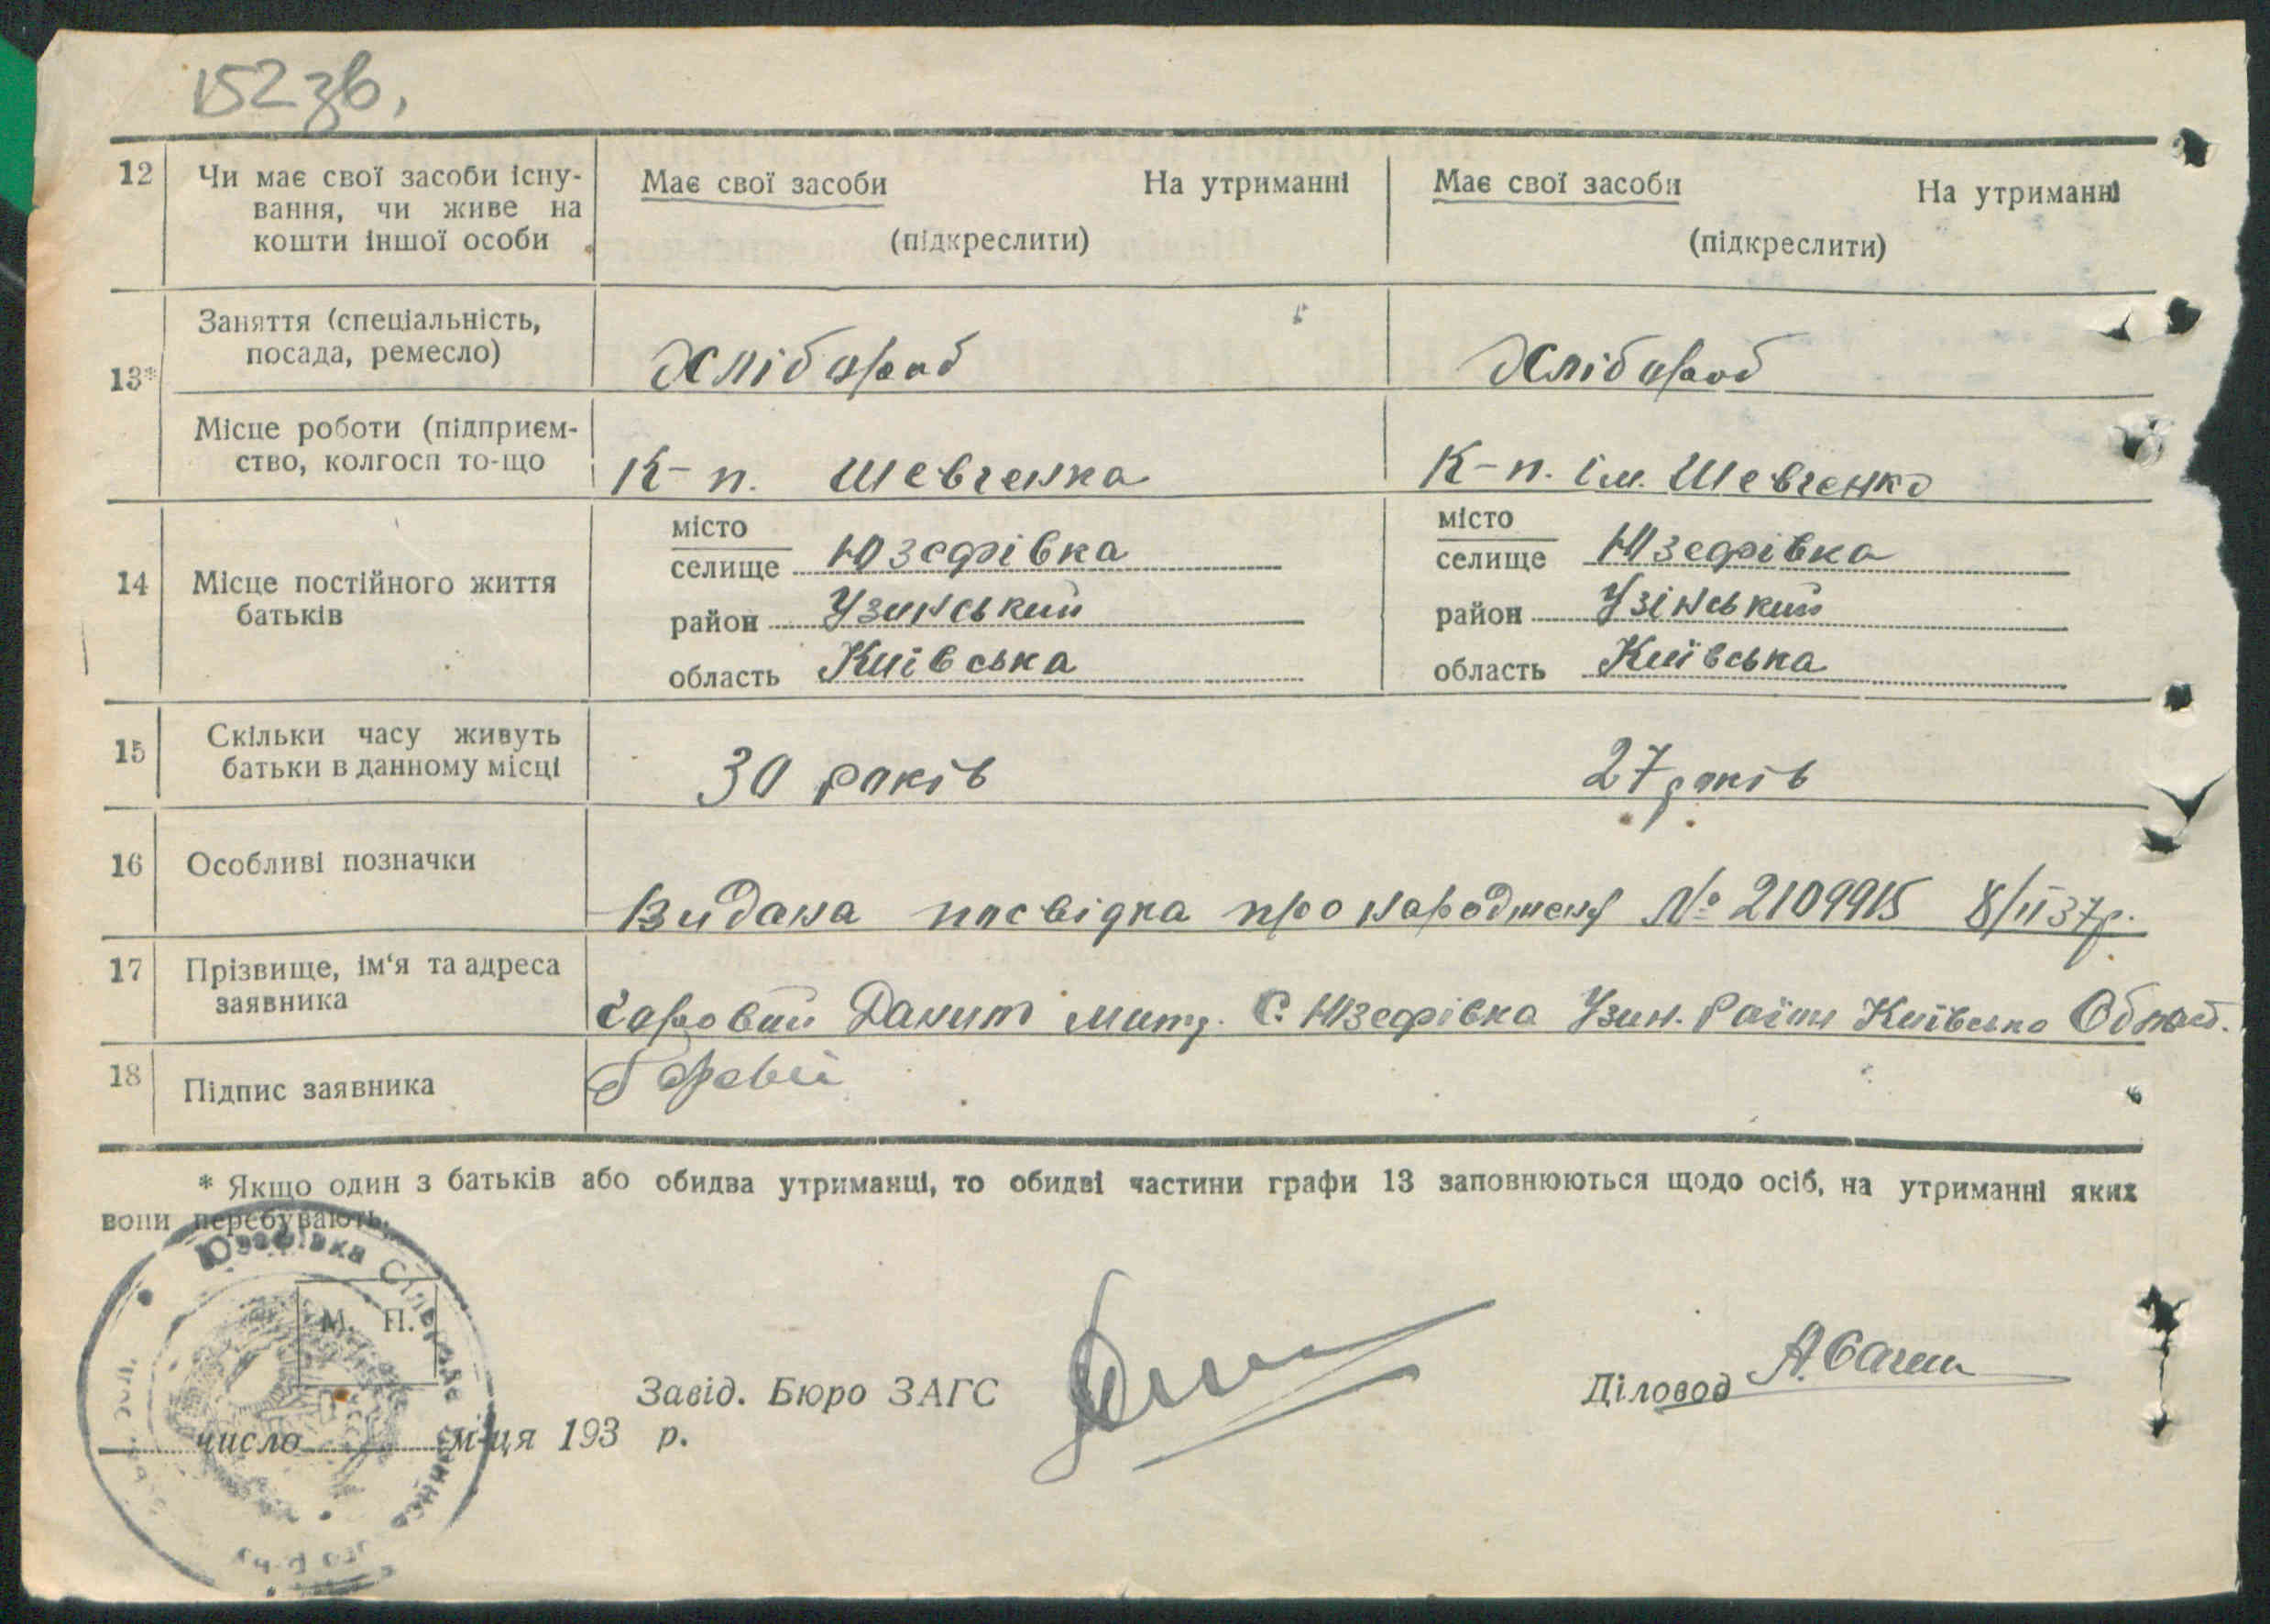 152 зв.
12 Чи має свої засоби існу-
вання, чи живе на
кошти іншої особи
Має свої засоби На утриманні
(підкреслити)
Має свої засоби На утриманні
(підкреслити)
13*
Заняття (спеціальність,
посада, ремесло)
Хлібороб
Хлібороб
Місце роботи (підприєм-
ство, колгосп то-що
К-п. Шевченка
К-п. ім. Шевченко
14 Місце постійного життя
батьків
місто
селище Юзефівка
район Узинський
область Київська
місто
селище Юзефівка
район Узінський
область Київська
15 Скільки часу живуть
батьки в данному місці
30 років
27 років
16 Особливі позначки
Видана посвідка про народжену № 2109915 8/II 37р.
17 Прізвище, ім‘я та адреса
заявника
Данит С. Юзефівка Узин. Київсько
18 Підпис заявника
* Якщо один з батьків або обидва утриманці, то обидві частини графи 13 заповнюються щодо осіб, на утриманні яких
вони перебувають.
Юзефівка Сільська
М. П.
Завід. Бюро ЗАГС
Діловод
число м-ця 193 р.